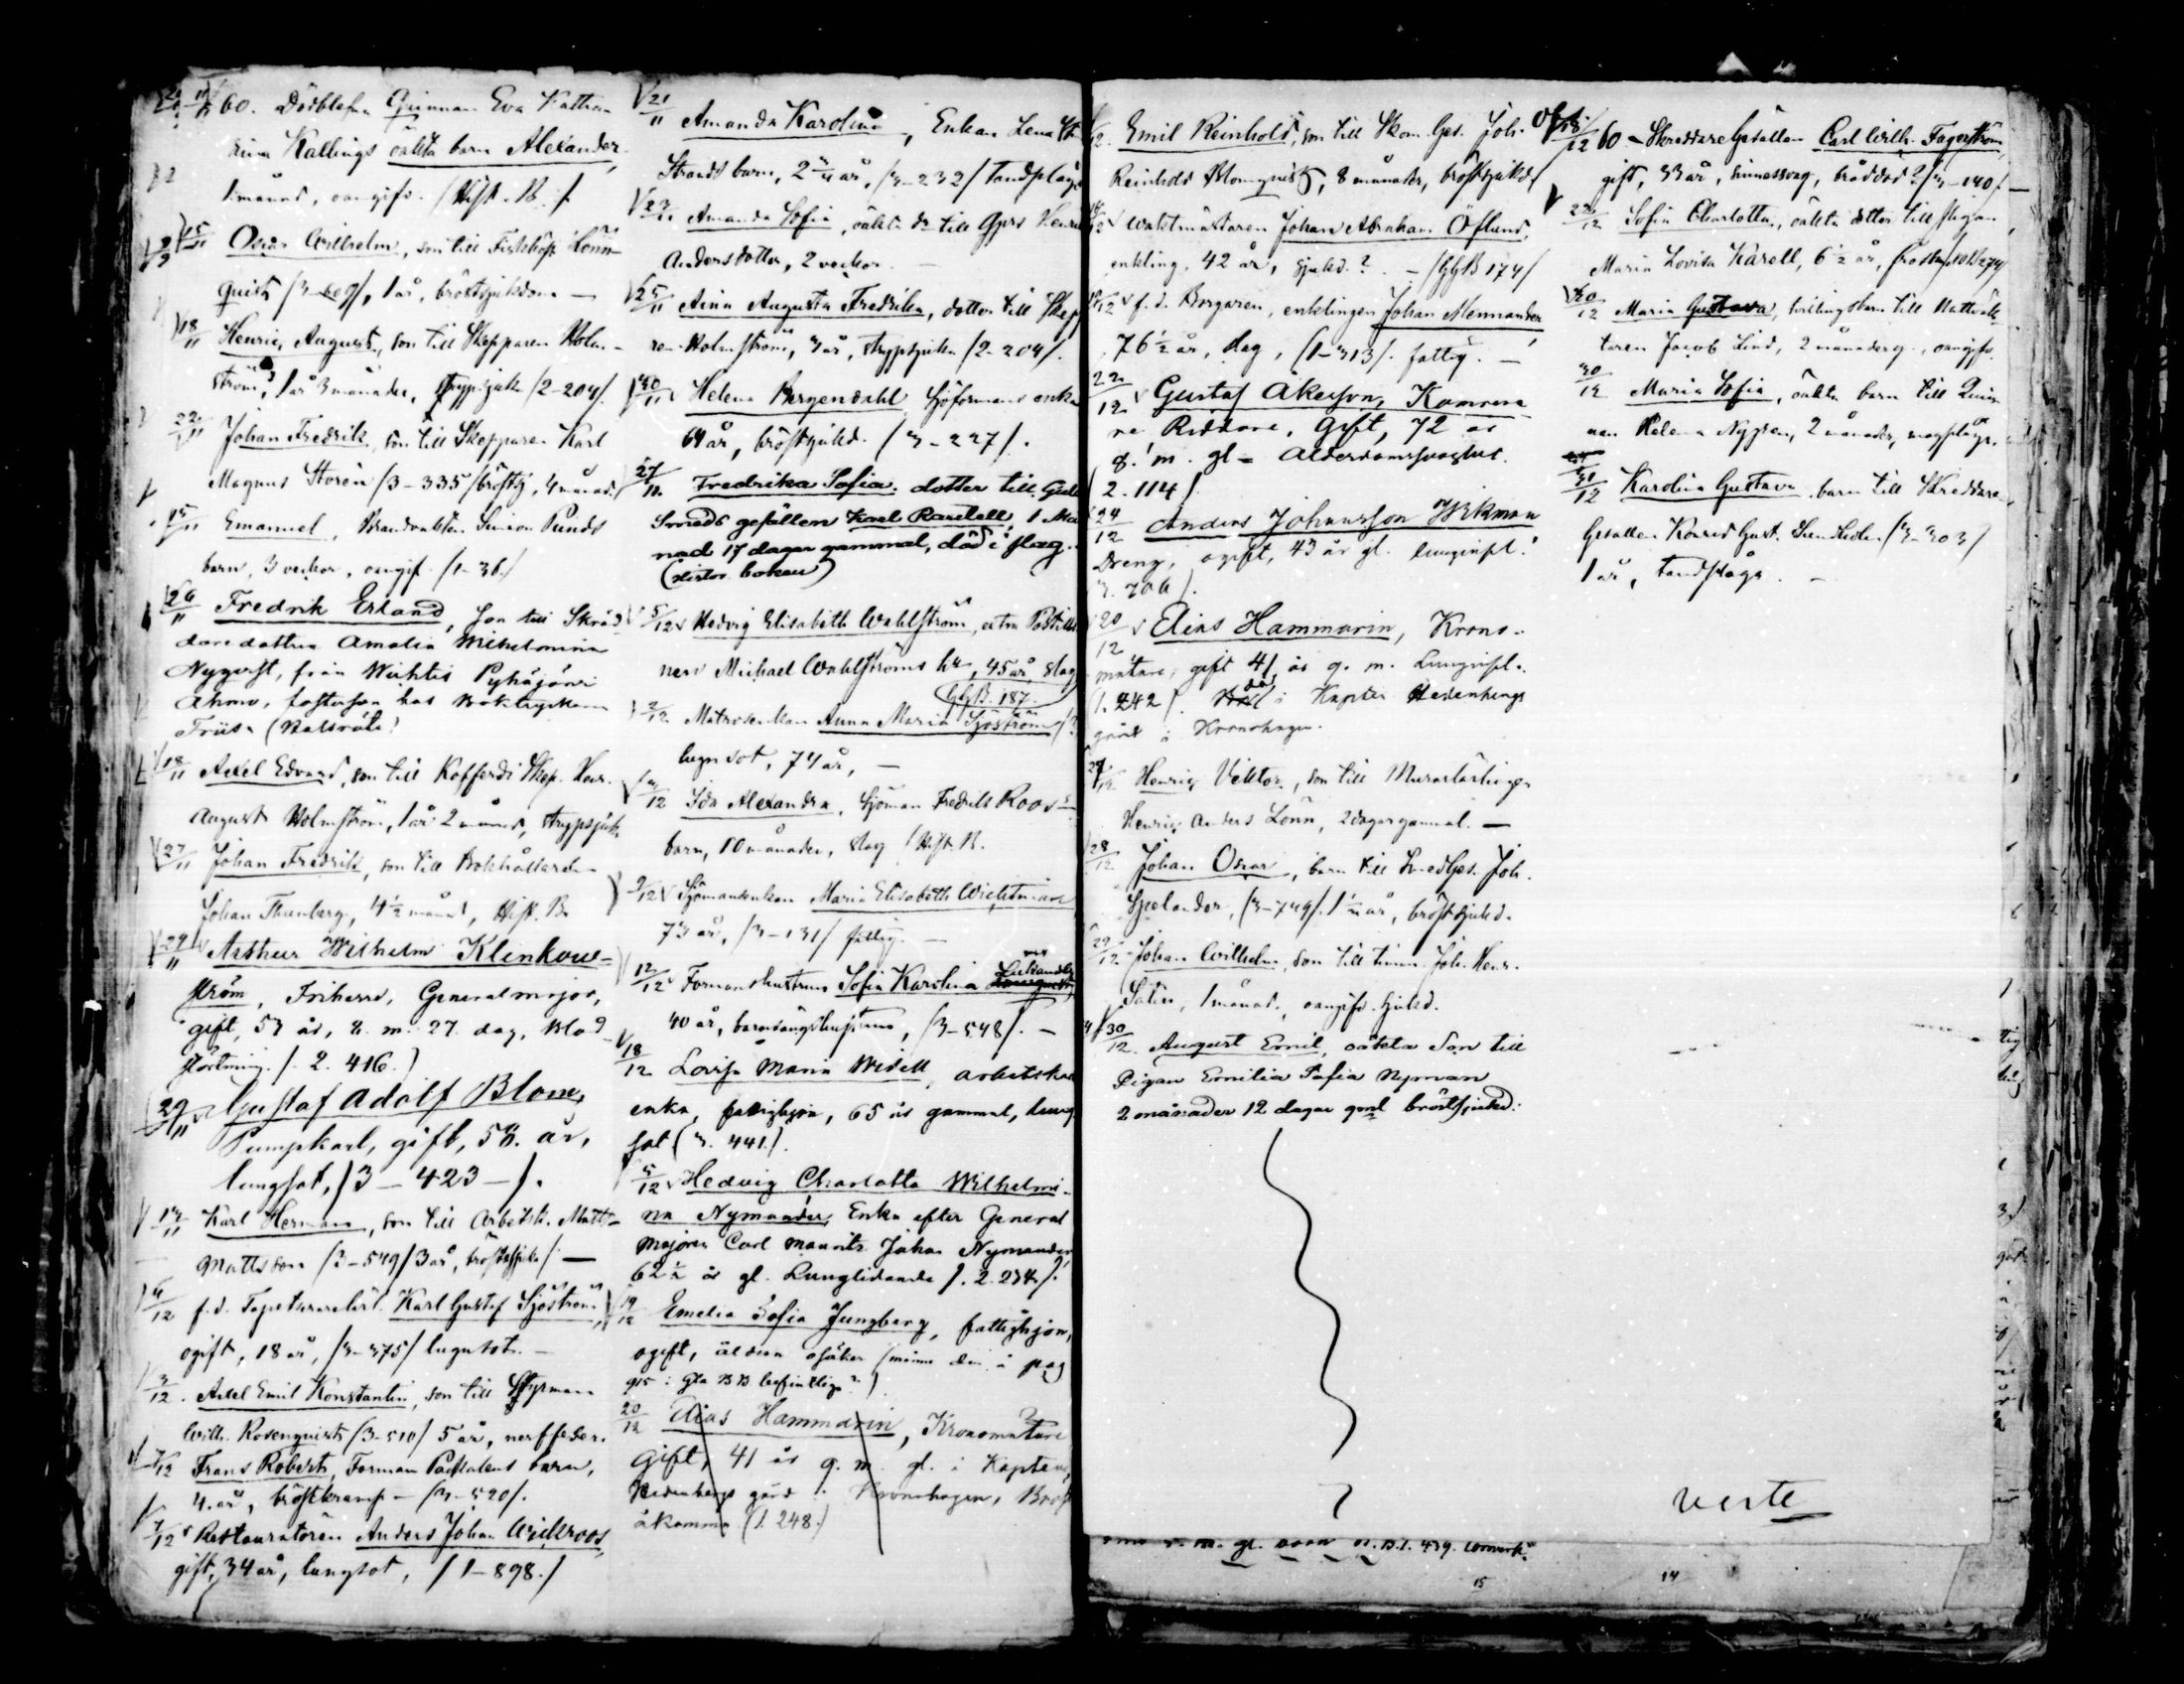 60. Dödblefne Qvinnan Eva Katha-
rina Kallings oäkta barn Alexander,
1 månad, oangifv. / Hist. B. /.
15/11 Oscar Wilhelm, son till Fiskköp. Lönn-
quist /3-609/, 1 år, bröstsjukdom —
18/11 Henric August, son till Skepparen Holm-
ström, 1 år 3 månader, strypsjuka /2-204/.
22/11 Johan Fredrik, son till Skepparen Karl
Magnus Storén /3-335/ bröstsj., 4 månad.
15/11 Emanuel, Brandvakten Simon Punds
barn, 3 veckor, oangif. /1-36./
26/11 Fredrik Erland, son till Skräd
daredottren Amalia Wilhelmina
Nyqvist, från Wichtis Pyhäjärvi
Ahmo, fosterson hos Boktryckare
Friis (Halsröta)
18/11 Axel Edvard, son till Kofferdi Skep. Henr.
August Holmström, 1 år 2 månad, strypsjuk.
27/11 Johan Fredrik, son till Bokhållaren
Johan Thunberg, 4½ månad, Hist. B.
29/11 Arthur Wilhelm Klinkow-
ström, Friherre, Generalmajor,
gift, 53 år, 8. m. 27. dag, Blod
störtning /. 2. 416.)
29/11 Gustaf Adolf Blom,
Pumpkarl, gift, 58. år,
lungsot, /3-423-/.
14/11 Karl Herman, son till Arbetsk. Matts
Mattsson /3-549/ 3 år, bröstsjuka/ —
6/12 f.d. Tapetseraregesäll Karl Gustaf Sjöström,
ogift, 18 år, /3-375/ lugnsot. —
3/12. Axel Emil Konstantin, son till Styrman
Wilh. Rosenquist /3-510/ 5 år, nerffeber.
7/12 Frans Robert, Forman Packalens barn,
4. år, bröstkramp — /3-520/.
7/12 Restauratören Anders Johan Wickroos,
gift, 34 år, lungsot, /1-898./
21/11 Amanda Karolina, Enkan Lena
Strands barn, 2 ¾ år, /3-232/ tandplåga
23/11 Amanda Sofia, oäkta dr till Gjers Henr.
Andersdotter, 2 veckor. —
25/11 Aina Augusta Fredrika, dotter till Skep
ren Holmström, 3 år, strypsjuka /2-204/.
30/11 Helena Bergendahl Sjöformans enka
64 år, bröstsjukd. /3-227/.
27/11. Fredrika Sofia. dotter till Guld
Smeds gesällen Karl Randell, 1 Må
nad 17 dagar gammal, död i slag.
(Histor. boken)
5/12 Hedvig Elisabeth Wahlström, extra Postillo
nen Michael Wahlströms hu, 45 år, slag
GGB. 187.
2/12 Matrosenkan Anna Maria Sjöström /?
lugnsot, 74 år, —
4/12 Ida Alexandra, Sjöman Fredrik Roos
barn, 10 månader, slag / Hist. B.
9/12 Sjömansenkan Maria Elisabeth Wichtman
73 år, /3-131/ fattig. —
12/12 Formanshustrun Sofia Karolina
40 år, barnsängshustrun, /3-548/. —
18/12 Lovisa Maria Widell, arbetskar
enka, fattighjon, 65 år gammal, lung
sot (3. 441.)
5/12 Hedvig Charlotta Wilhelmi-
na Nymander, Enka efter General
majoren Carl Maurits Johan Nymander,
62½ år gl. Lunglidande /. 2. 234./.
19/12 Emelia Sofia Jungberg, fattighjon,
ogift, åldern osäker (månne den å pag
915 i Gla BB befintliga?)
20/12 Elias Hammarin, Kronomätare
Gift, 41 år 9. m. gl. i Kapten
Hedenbergs gård i Kronohagen, Bröst
åkomma (1. 248.)
Emil Reinhold, son till Skom. Ges. Joh.
Reinhold Blomqvist, 8 månader, bröstsjukd.
Waktmästaren Johan Abraham Öflund,
enkling, 42 år, sjukd.? — /GGB 174/
f.d. Borgaren, enklingen Johan Mennander,
76½ år, slag, /1-313/. fattig. —
22/12 Gustaf Åkerson, Kamrere
re Riddare, Gift, 72 år
8. m. gl = Ålderdomssvaghet.
(2. 114)
24/12 Anders Johansson Wikman
Dreng, ogift, 43 år gl. lunginfl.
3. 706).
20/12 Elias Hammarin, Krono-
mätare, gift 41 år 9. m. Lunginfl.
1. 242/. död i Kapten Hedenbergs
gård i Kronohagen.
27/12 Henric Viktor, son till Murarlärlingen
Henric Anders Lönn, 2 dagar gammal. —
28/12 Johan Oscar, barn till SmedGes. Joh.
Spelander, /3-749/. 1½ år, bröstsjukd.
29/12 Johan Wilhelm, son till timm. Joh. Henr.
Salin, 1 månad, oangifv. sjukd.
30/12. August Emil, oäkta Son till
Pigan Emilia Sofia Nyman
2 månader 12 dagar gml bröstsjukd:
m. gl. 439.
15
18/12 60 — Skreddare Gesällen Carl Wilh. Fagerström,
gift, 33 år, sinnessvag, bråddöd? /3-140/. —
23/12 Sofia Charlotta, oäkta dotter till pigan
Maria Lovisa Karell, 6½ år,
20/12 Maria Gustava, tvillingbarn till Nattväk
taren Jacob Lind, 2 månader g., oangifv.
30/12 Maria Sofia, oäkta barn till Qvin
nan Helena Nygren, 2 månader, magplåga.
31/12 Karolina Gustava barn till Skreddare
Gesällen Konrad Gust. /3-303/
1 år, tandplåga. —
verte
14